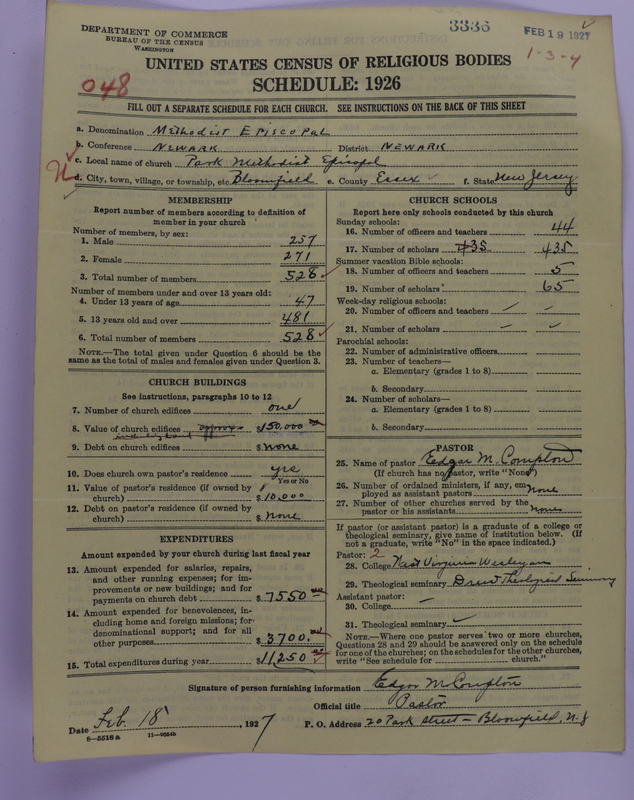 DEPARTMENT OF COMMERCE
BUREAU OF THE CENSUS
WASHINGTON
3336
FEB 19 1927
1-3-4
048
UNITED STATES CENSUS OF RELIGIOUS BODIES
SCHEDULE: 1926
FILL OUT A SEPARATE SCHEDULE FOR EACH CHURCH. SEE INSTRUCTIONS ON THE BACK OF THIS SHEET
a. Denomination Methodist Episcopal
b. Conference NEWARK District NEWARK
c. Local name of church Park Methodist Episcopal
d. City, town, village, or township, etc. Bloomfield e. County Essex f. State New Jersey
MEMBERSHIP
Report number of members according to definition of
member in your church
Number of members, by sex:
1. Male 257
2. Female 271
3. Total number of members 528
Number of members under and over 13 years old:
4. Under 13 years of age 47
5. 13 years old and over 481
6. Total number of members 528
NOTE.—The total given under Question 6 should be the
same as the total of males and females given under Question 3.
CHURCH BUILDINGS
See instructions, paragraphs 10 to 12
7. Number of church edifices one
8. Value of church edifices approx $150,000
9. Debt on church edifices $ none
10. Does church own pastor's residence yes
Yes or No
11. Value of pastor's residence (if owned by
church) $10,000
12. Debt on pastor's residence (if owned by
church) $ none
EXPENDITURES
Amount expended by your church during last fiscal year
13. Amount expended for salaries, repairs,
and other running expenses; for im-
provements or new buildings; and for
payments on church debt $7550
14. Amount expended for benevolences, in-
cluding home and foreign missions; for
denominational support; and for all
other purposes $3700.
15. Total expenditures during year $11,250
CHURCH SCHOOLS
Report here only schools conducted by this church
Sunday schools:
16. Number of officers and teachers 44
17. Number of scholars 435 435
Summer vacation Bible schools:
18. Number of officers and teachers 5
19. Number of scholars 65
Week-day religious schools:
20. Number of officers and teachers
21. Number of scholars
Parochial schools:
22. Number of administrative officers
23. Number of teachers—
a. Elementary (grades 1 to 8)
b. Secondary
24. Number of scholars—
a. Elementary (grades 1 to 8)
b. Secondary
PASTOR
25. Name of pastor Edgar M. Compton
(If church has no pastor, write "None")
26. Number of ordained ministers, if any, em-
ployed as assistant pastors none
27. Number of other churches served by the
pastor or his assistants none
If pastor (or assistant pastor) is a graduate of a college or
theological seminary, give name of institution below. (If
not a graduate, write "No" in the space indicated.)
Pastor: 2
28. College West Virginia Wesleyan
29. Theological seminary Drew Theological Seminary
Assistant pastor:
30. College —
31. Theological seminary
NOTE.—Where one pastor serves two or more churches,
Questions 28 and 29 should be answered only on the schedule
for one of the churches; on the schedules for the other churches,
write "See schedule for church."
Signature of person furnishing information Edgar M Compton
Official title Pastor
Date Feb. 18, 1927
P. O. Address 20 Park Street — Bloomfield, N. J
8-5518a 11-9664b